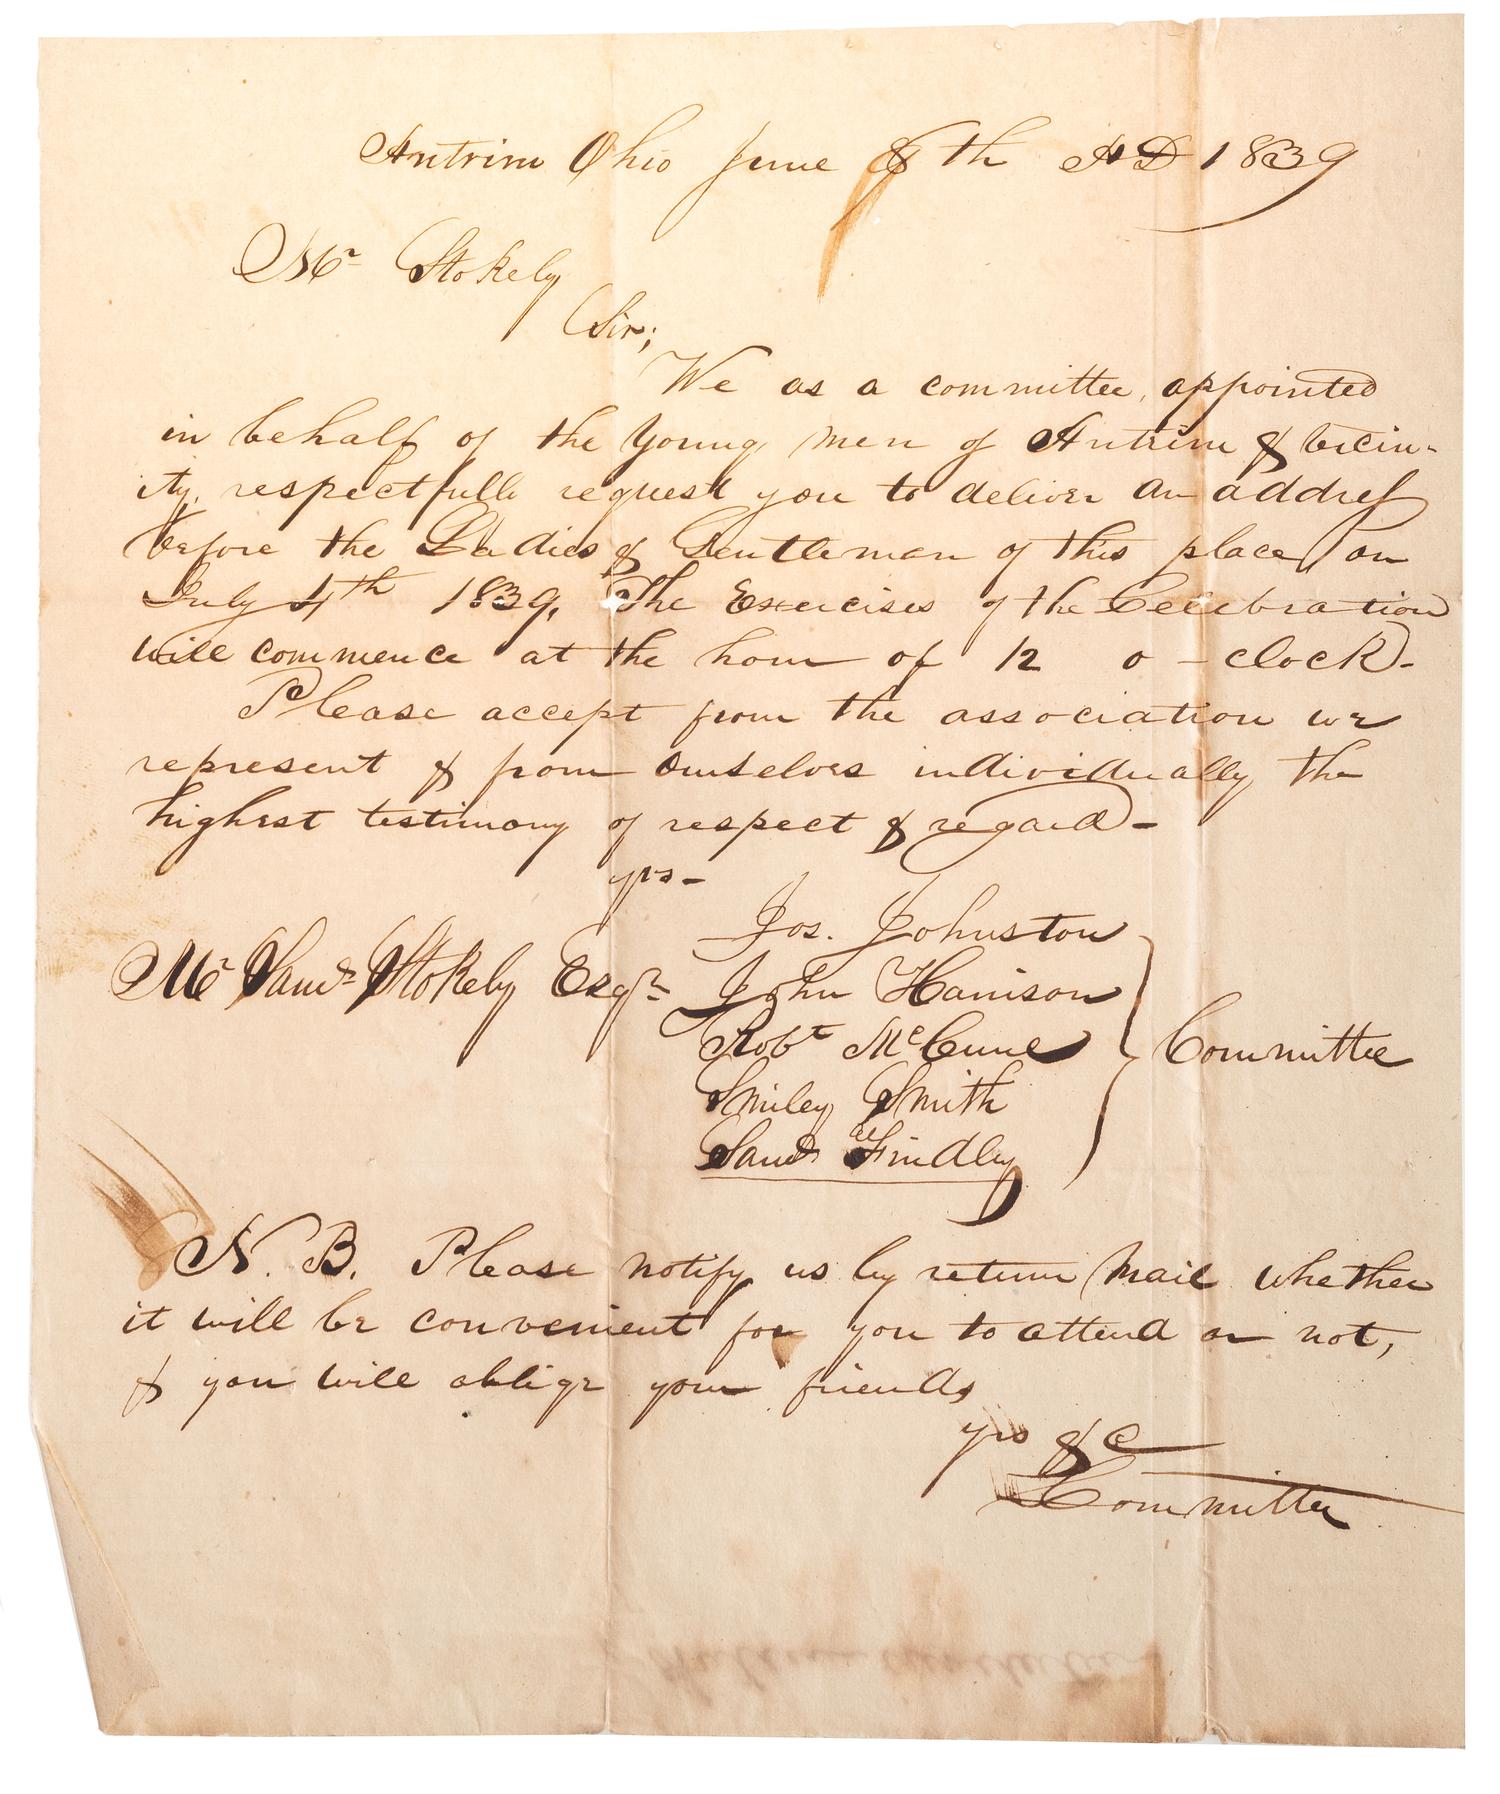 Antrim Ohio June 8th AD 1839
Mr Stokely
Sir;
We as a committee, appointed
in behalf of the Young men of Antrim & vicin-
ity, respectfully request you to deliver an address
before the Ladies & Gentleman of this place on
July 4th 1839. The Exercises of the Celebration
will commence at the hour of 12 o-clock-
Please accept from the association we
represent & from ourselves individually the
highest testimony of respect & regard-
yrs-
Jos. Johnston
Mr Saml Stokely Esqr John Hanison
Robt McCune Committee
Smiley Smith
Saml Findley
N. B. Please notify us by return mail whether
it will be convenient for you to attend or not,
& you will oblige your friends
yrs &c
Committee